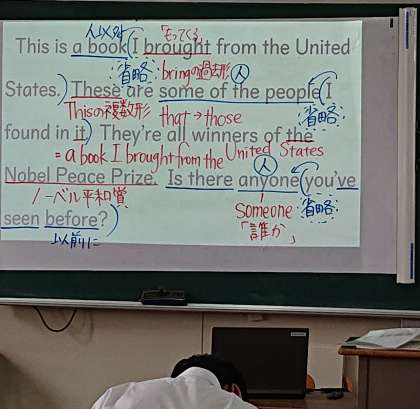 人以外 「もってくる」
This is a book (I brought from the United
省略 bringの過去形 人
States.) These are some of the people (I
Thisの複数形 that → those 省略
found in it) They're all winners of the
= a book I brought from the United States
Nobel Peace Prize. Is there anyone (you've
ノーベル平和賞 人 someone 省略
seen before?)
以前に 「誰か」